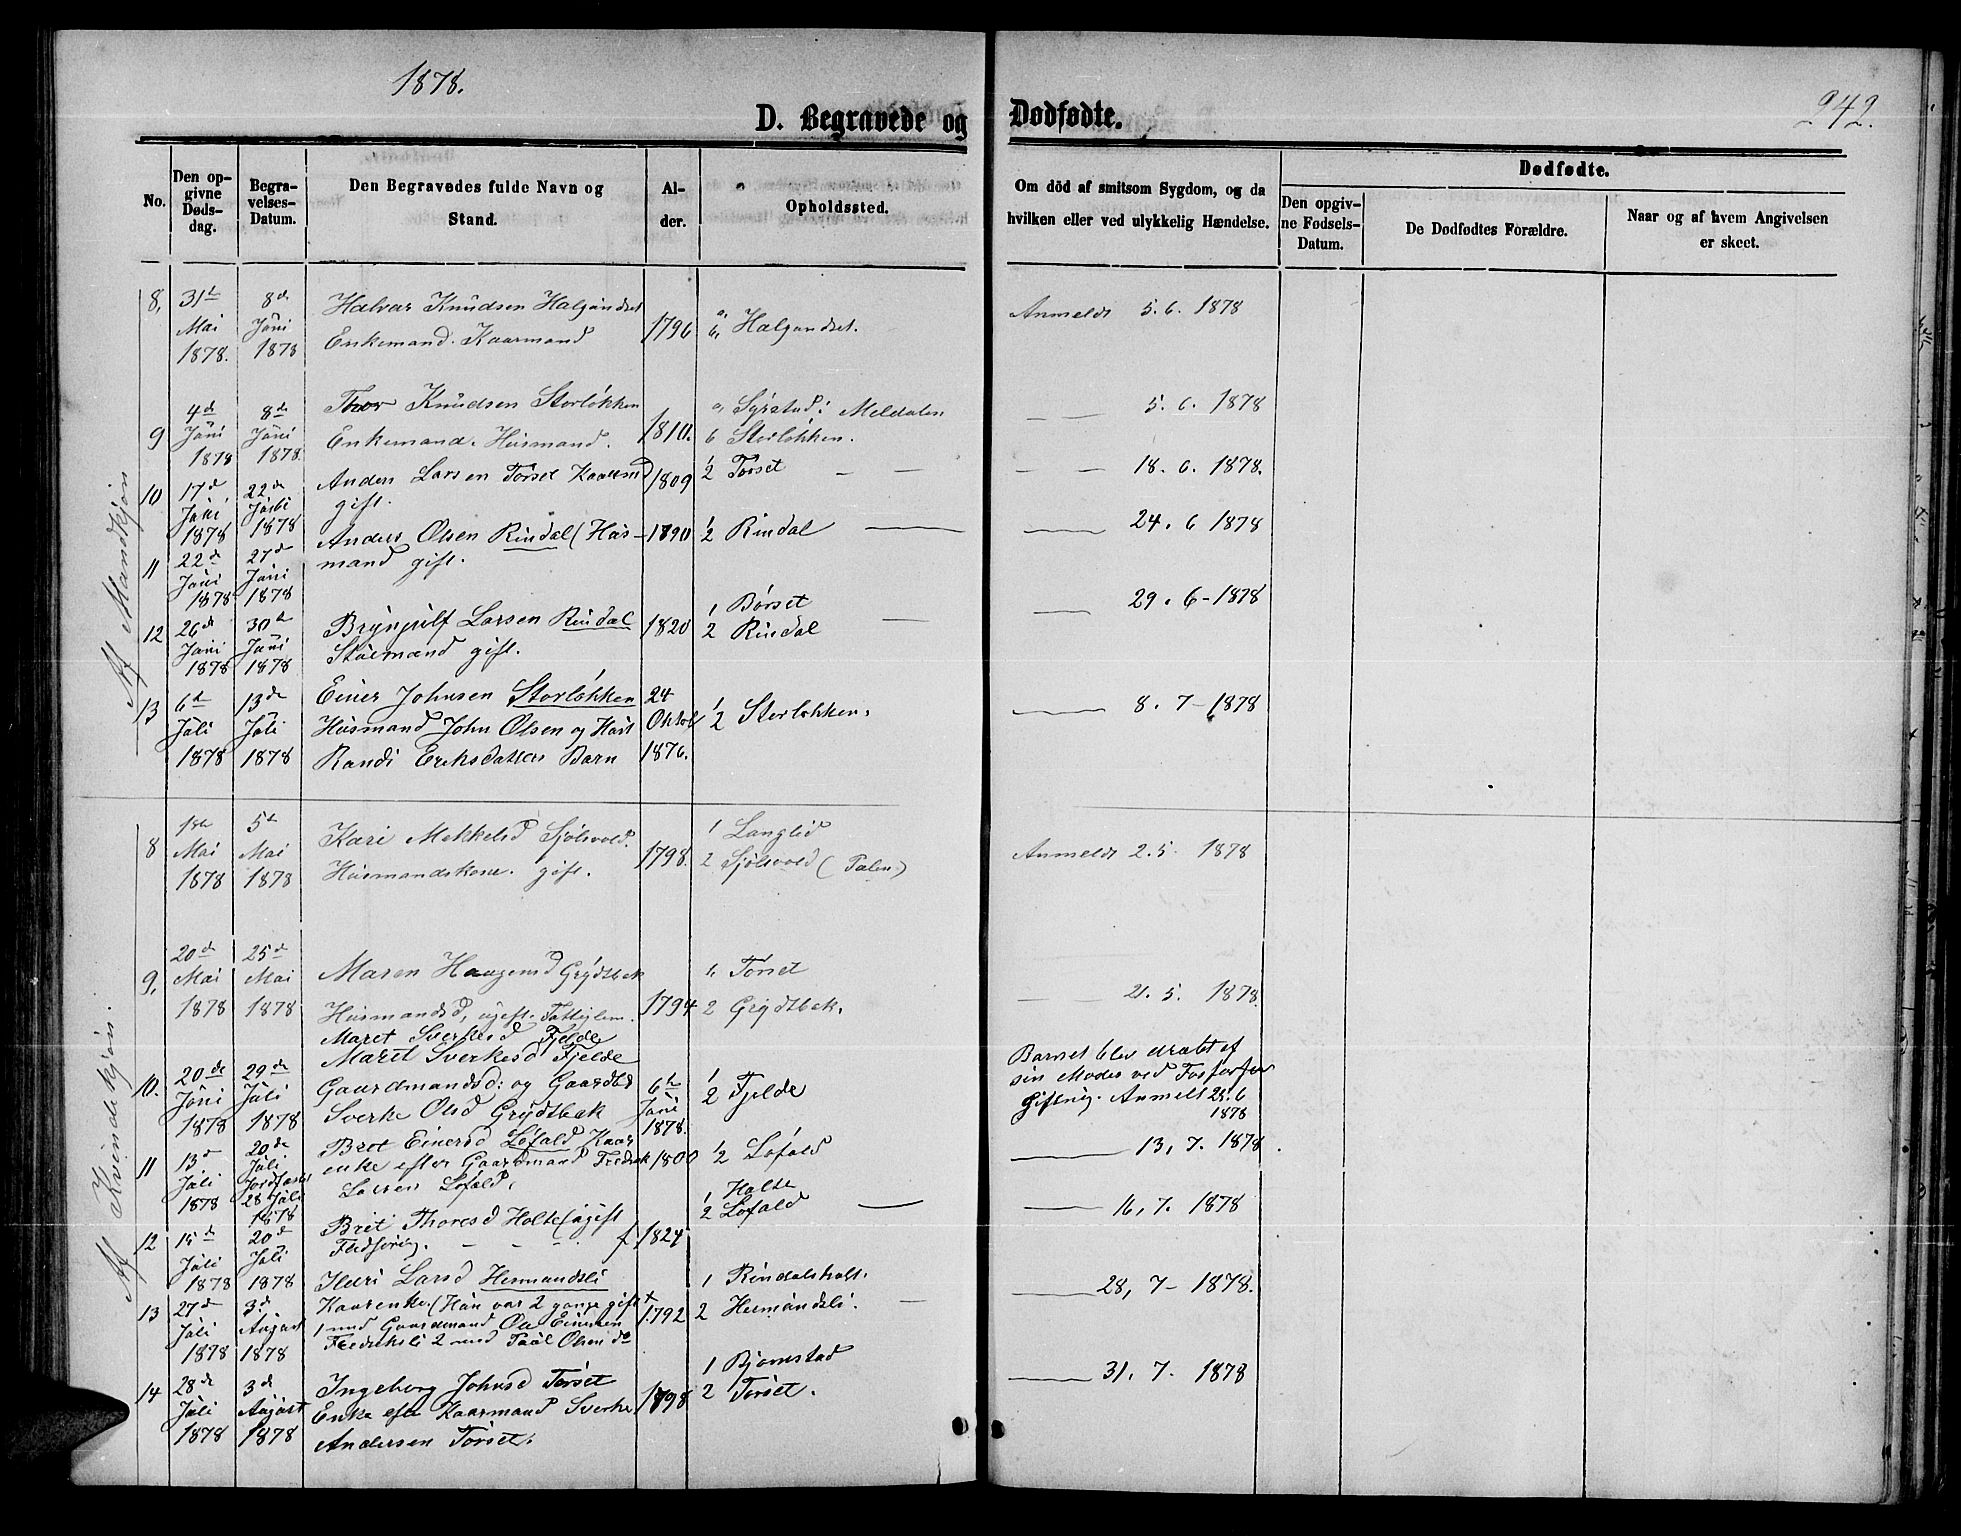 1878.
242.
D. Begravede og Dødfødte.
No.
Den opgivne Dødsdag.
Begravelses-Datum.
Den Begravedes fulde Navn og Stand.
Alder.
Opholdssted.
Om död af smitsom Sygdom, og da hvilken eller ved ulykkelig Hændelse.
Dødfødte.
Den opgivne Fødsels-Datum.
De Dødfødtes Forældre.
Naar og af hvem Angivelsen er skeet.
Af Mandkjøn
8, 31te Mai 1878. 8de Juni 1878
Halvar Knudsen Halgundset
Enkemand. Kaarmand
1796
a, b, Halgundset.
Anmeldt 5.6. 1878
9 4de Juni 1878 8de Juni 1878.
Thor Knudsen Storløkken
Enkemand. Husmand.
1810.
a, Syrstad i Meldalen
b Storløkken.
5. 6. 1878
10 17de Juni 1878 22de 1878
Anders Larsen Torset Kaarmd
gift.
1809
1/2 Torset
18. 6. 1878.
11 22de Juni 1878 27de Juni 1878
Anders Olsen Rindal (Hus-
mand gift.
1790
1/2 Rindal
24. 6 1878
12 26de Juni 1878 30te Juni 1878
Brynjulf Larsen Rindal
gift.
1820
1 Børset
2 Rindal
29. 6 - 1878
13 6te Juli 1878 13de Juli 1878
Einer Johnsen Storløkken
Husmand John Olsen og Hust
Randi Eriksdatters Barn
24 Oktob 1876.
1/2 Storløkken.
8. 7 - 1878
Af Kvindekjøn.
8 1ste Mai 1878 5te Mai 1878
Kari Mekkelsd Sjølsvold.
Husmandskone. gift.
1798.
1 Langlid
2 Sjølsvold (Talen)
Anmeldt 2. 5. 1878
9, 20de Mai 1878 25de Mai 1878
Maren Haugensd Grydtbak
Husmandsd, ugift. Fattiglem.
1794
1, Torset
2 Grydtbak.
21. 5. 1878.
Maret Sverkesd Fjelde
10. 20de Juni 1878 29de Juli 1878
Maret Sverkesd Fjelde
Gaardmandsd: og Gaardbd
Sverke Olsd Grydtbak
6te Juni 1878.
1/2 Fjelde
Barnet blev dræbt af
sin Moder ved Fosforfor
giftnig. Anmeldt 28.6
1878
11 13de Juli 1878 20de Juli Jordfæstet 28 Juli 1878
Brit Einersd Løfald Kaar
enke efter Gaardmand Fredrik
Larsen Løfald.
1800
1/2 Løfald
13, 7. 1878.
12 15de Juli 1878 20de Juli 1878
Brit Thoresd Holte (ugift
1824
1 Holte
2 Løfald
16, 7. 1878
13 27de Juli 1878 3de August 1878
Ildri Larsd Hermandsli
Kaarenke. (Hun var 2 gange gift
1 med Gaardmand Ole Einersen
Fredriksli 2 med Paul Olsen do
1792
1 Rindalsholt.
2 Hermandsli.
28, 7 - 1878.
14 28de Juli 1878 3de August 1878
Ingeborg Johnsd Torset
Enke efter Kaarmand Sverke
Andersen Torset.
1798
1 Bjørnstad
2 Torset.
31. 7. 1878